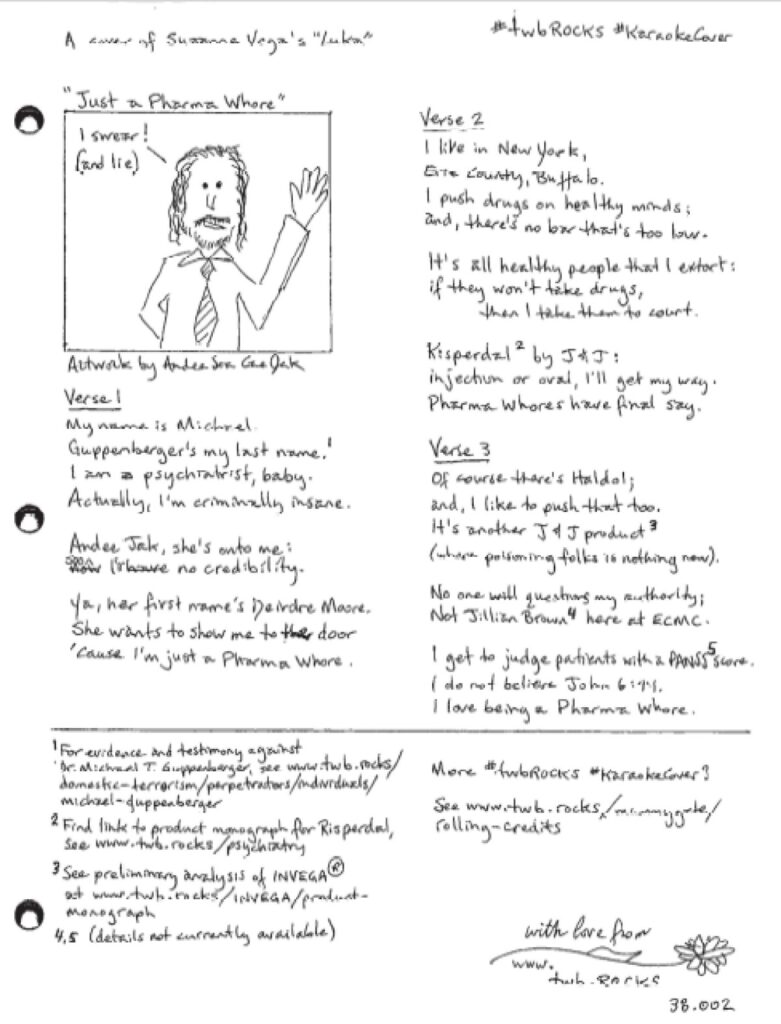 A cover of Suzanne Vega's "Luka"
#twbRocks #KaraokeCover
"Just a Pharma Whore"
I swear!
(and lie)
Artwork by Andee Jak
Verse 1
My name is Michael
Guppenberger's my last name.¹
I am a psychiatrist, baby.
Actually, I'm criminally insane.
Andee Jak, she's onto me:
soon I'll have no credibility.
Ya, her first name's Deirdre Moore.
She wants to show me to the door
'cause I'm just a Pharma Whore.
Verse 2
I live in New York,
Erie County, Buffalo.
I push drugs on healthy minds;
and, there's no bar that's too low.
It's all healthy people that I extort:
if they won't take drugs,
then I take them to court.
Risperdal² by J&J:
injection or oral, I'll get my way.
Pharma Whores have final say.
Verse 3
Of course there's Haldol;
and, I like to push that too.
It's another J&J product³
(where poisoning folks is nothing new).
No one will question my authority;
Not Jillian Brown⁴ here at ECMC.
I get to judge patients with a PANSS⁵ score.
I do not believe John 8:44.
I love being a Pharma Whore.
¹ For evidence and testimony against
Dr. Michael T. Guppenberger, see www.twb.rocks/
domestic-terrorism/perpetrators/individuals/
michael-guppenberger
² Find link to product monograph for Risperdal,
see www.twb.rocks/psychiatry
³ See preliminary analysis of INVEGA®
at www.twb.rocks/INVEGA/product-
monograph
4,5 (details not currently available)
More #twbRocks #KaraokeCover?
See www.twb.rocks/mummygate/
rolling-credits
with love from
www.
twb.Rocks
38.002